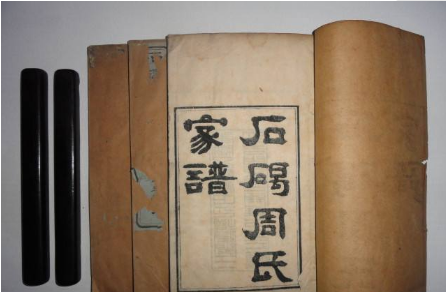 石碣周氏
家譜